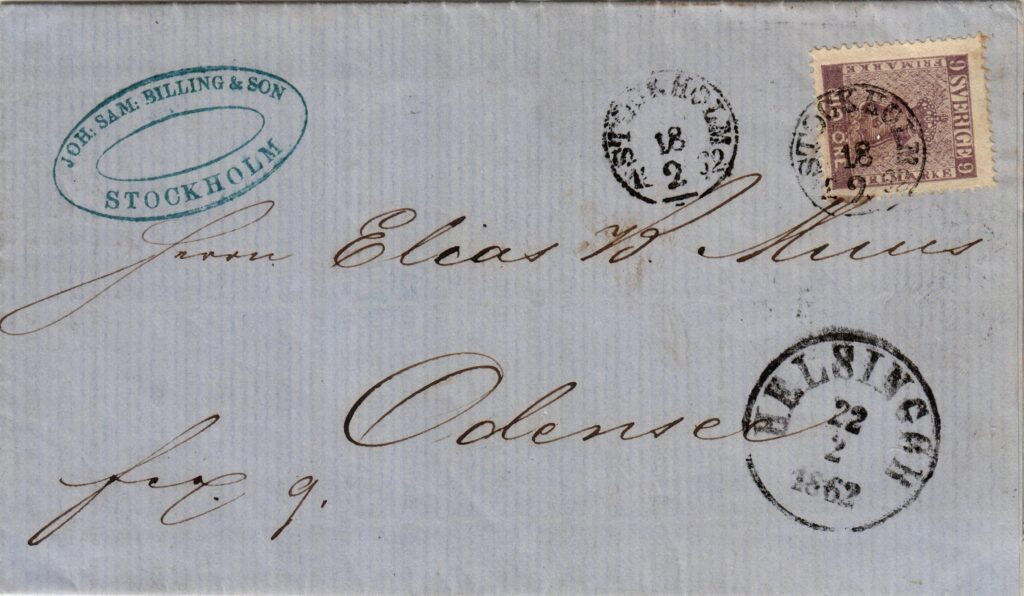 JOH: SAM: BILLING & SON
STOCKHOLM
STOCKHOLM
18
2
62
9 SVERIGE 9
FRIMARKE
FRIMARKE
STOCKHOLM
18
2
Herrn Elias B. Muus
Odense
HELSINGÖR
22
2
1862